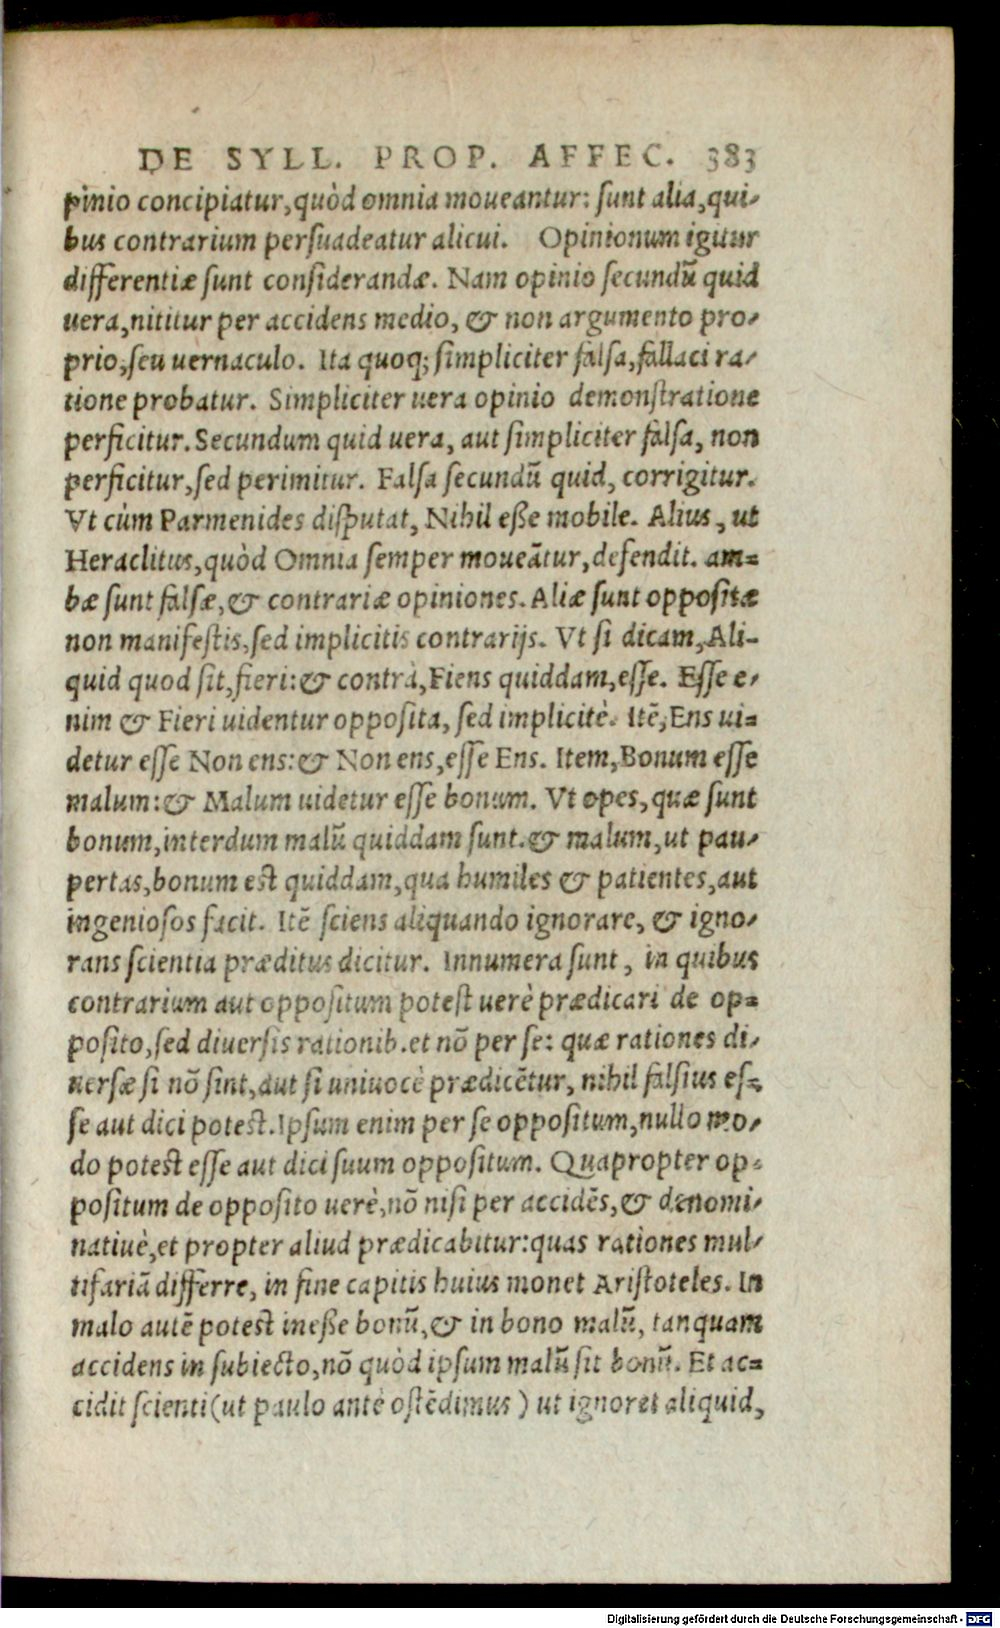 DE SYLL. PROP. AFFEC. 383
pinio concipiatur, quòd omnia moueantur: sunt alia, qui-
bus contrarium persuadeatur alicui. Opinionum igitur
differentiæ sunt considerandæ. Nam opinio secundũ quid
uera, nititur per accidens medio, & non argumento pro-
prio, seu uernaculo. Ita quoq; simpliciter falsa, fallaci ra-
tione probatur. Simpliciter uera opinio demonstratione
perficitur. Secundum quid uera, aut simpliciter falsa, non
perficitur, sed perimitur. Falsa secundũ quid, corrigitur.
Vt cùm Parmenides disputat, Nihil eße mobile. Alius, ut
Heraclitus, quòd Omnia semper moueãtur, defendit. am-
bæ sunt falsæ, & contrariæ opiniones. Aliæ sunt oppositæ
non manifestis, sed implicitis contrarijs. Vt si dicam, Ali-
quid quod sit, fieri: & contrà, Fiens quiddam, esse. Esse e-
nim & Fieri uidentur opposita, sed implicitè. Itẽ, Ens ui-
detur esse Non ens: & Non ens, esse Ens. Item, Bonum esse
malum: & Malum uidetur esse bonum. Vt opes, quæ sunt
bonum, interdum malũ quiddam sunt. & malum, ut pau-
pertas, bonum est quiddam, qua humiles & patientes, aut
ingeniosos facit. Itẽ sciens aliquando ignorare, & igno-
rans scientia præditus dicitur. Innumera sunt, in quibus
contrarium aut oppositum potest uerè prædicari de op-
posito, sed diuersis rationib. et nõ per se: quæ rationes di-
uersæ si nõ sint, aut si uniuocè prædicẽtur, nihil falsius es-
se aut dici potest. Ipsum enim per se oppositum, nullo mo-
do potest esse aut dici suum oppositum. Quapropter op-
positum de opposito uerè, nõ nisi per accidẽs, & denomi-
natiuè, et propter aliud prædicabitur: quas rationes mul-
tifariã differre, in fine capitis huius monet Aristoteles. In
malo autẽ potest ineße bonũ, & in bono malũ, tanquam
accidens in subiecto, nõ quòd ipsum malũ sit bonũ. Et ac-
cidit scienti (ut paulo antè ostẽdimus) ut ignoret aliquid,
Digitalisierung gefördert durch die Deutsche Forschungsgemeinschaft - DFG